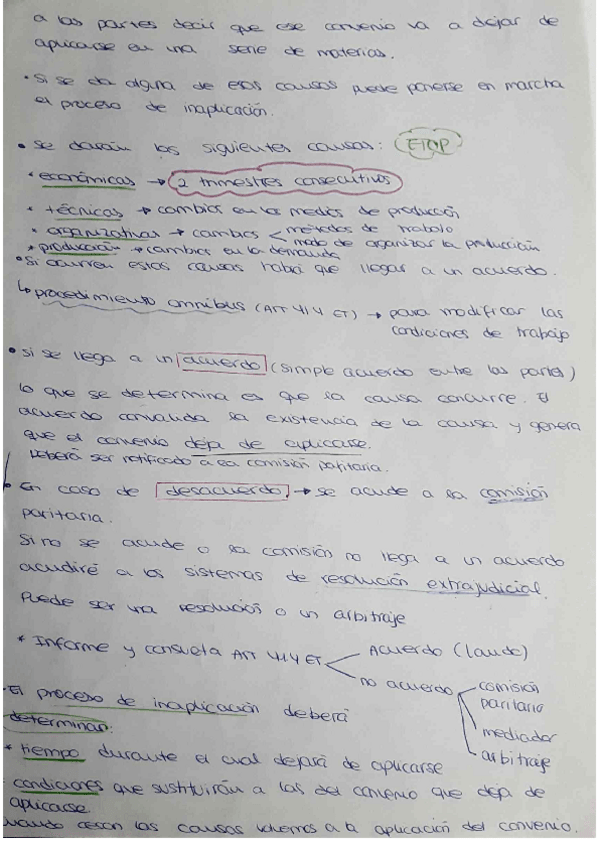 a las partes decir que ese convenio va a dejar de
aplicarse en una serie de materias.
• Si se da alguna de esas causas puede ponerse en marcha
el proceso de inaplicación.
• Se darán las siguientes causas: ETOP
* económicas → 2 trimestres consecutivos
* técnicas → cambios en los medios de producción
* organizativas → cambios < métodos de trabajo
modo de organizar la producción
* producción → cambios en la demanda
• Si ocurren estas causas habrá que llegar a un acuerdo.
↳ procedimiento omnibus (Art 41.4 ET) → para modificar las
condiciones de trabajo
• Si se llega a un acuerdo (simple acuerdo entre las partes)
lo que se determina es que la causa concurre. El
acuerdo convalida la existencia de la causa y genera
que el convenio deja de aplicarse.
Deberá ser notificado a la comisión paritaria.
• En caso de desacuerdo → se acude a la comisión
paritaria.
Si no se acude o la comisión no llega a un acuerdo
acudiré a los sistemas de resolución extrajudicial.
Puede ser una resolución o un arbitraje
* Informe y consulta Art 41.4 ET
Acuerdo (laudo)
no acuerdo
comisión
paritaria
mediador
arbitraje
• El proceso de inaplicación deberá
determinar:
* tiempo durante el cual dejará de aplicarse
condiciones que sustituirán a las del convenio que deja de
aplicarse.
cuando cesan las causas volvemos a la aplicación del convenio.